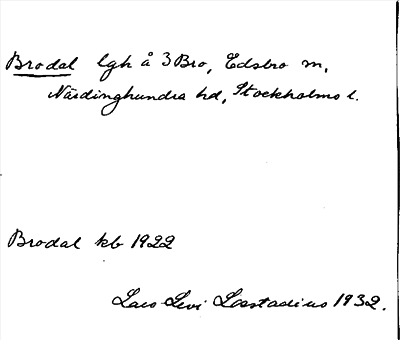 Brodal lgh å 3 Bro, Edsbro sn,
Närdinghundra hd, Stockholms l.
Brodal kb 1922
Lars Levi Læstadius 1932.